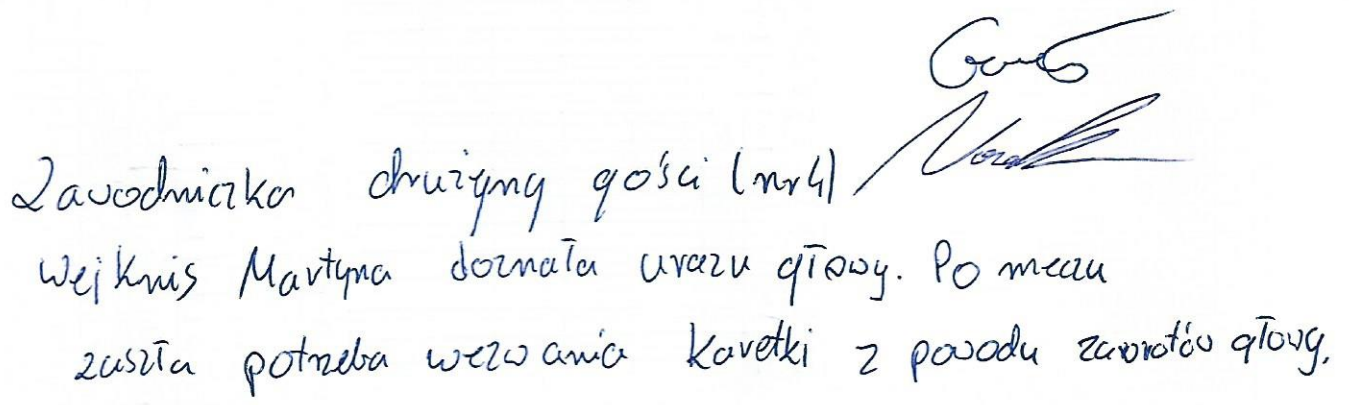 Zawodniczka drużyny gości (nr 4)
Wejknis Martyna doznała urazu głowy. Po meczu
zaszła potrzeba wezwania karetki z powodu zawrotów głowy.